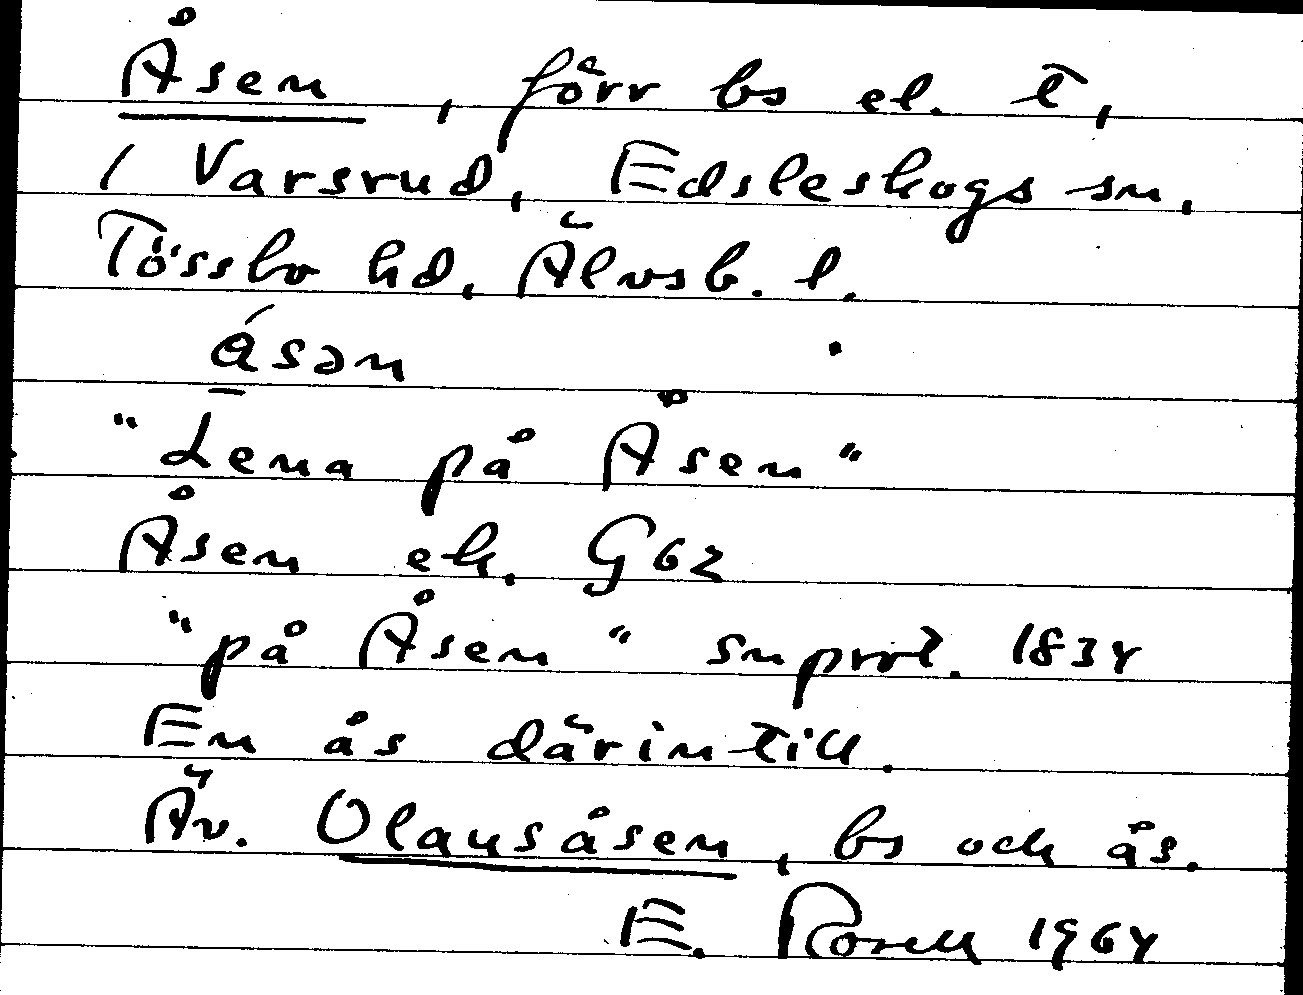 Åsen, förr bs el. t,
i Varsrud, Edsleskogs sn.
Tössbo hd. Älvsb. l.
ǻsən
"Lena på Åsen"
Åsen ek. G62
"på Åsen" snprot. 1834
En ås därintill.
Äv. Olausåsen, bs och ås.
E. Rosell 1964